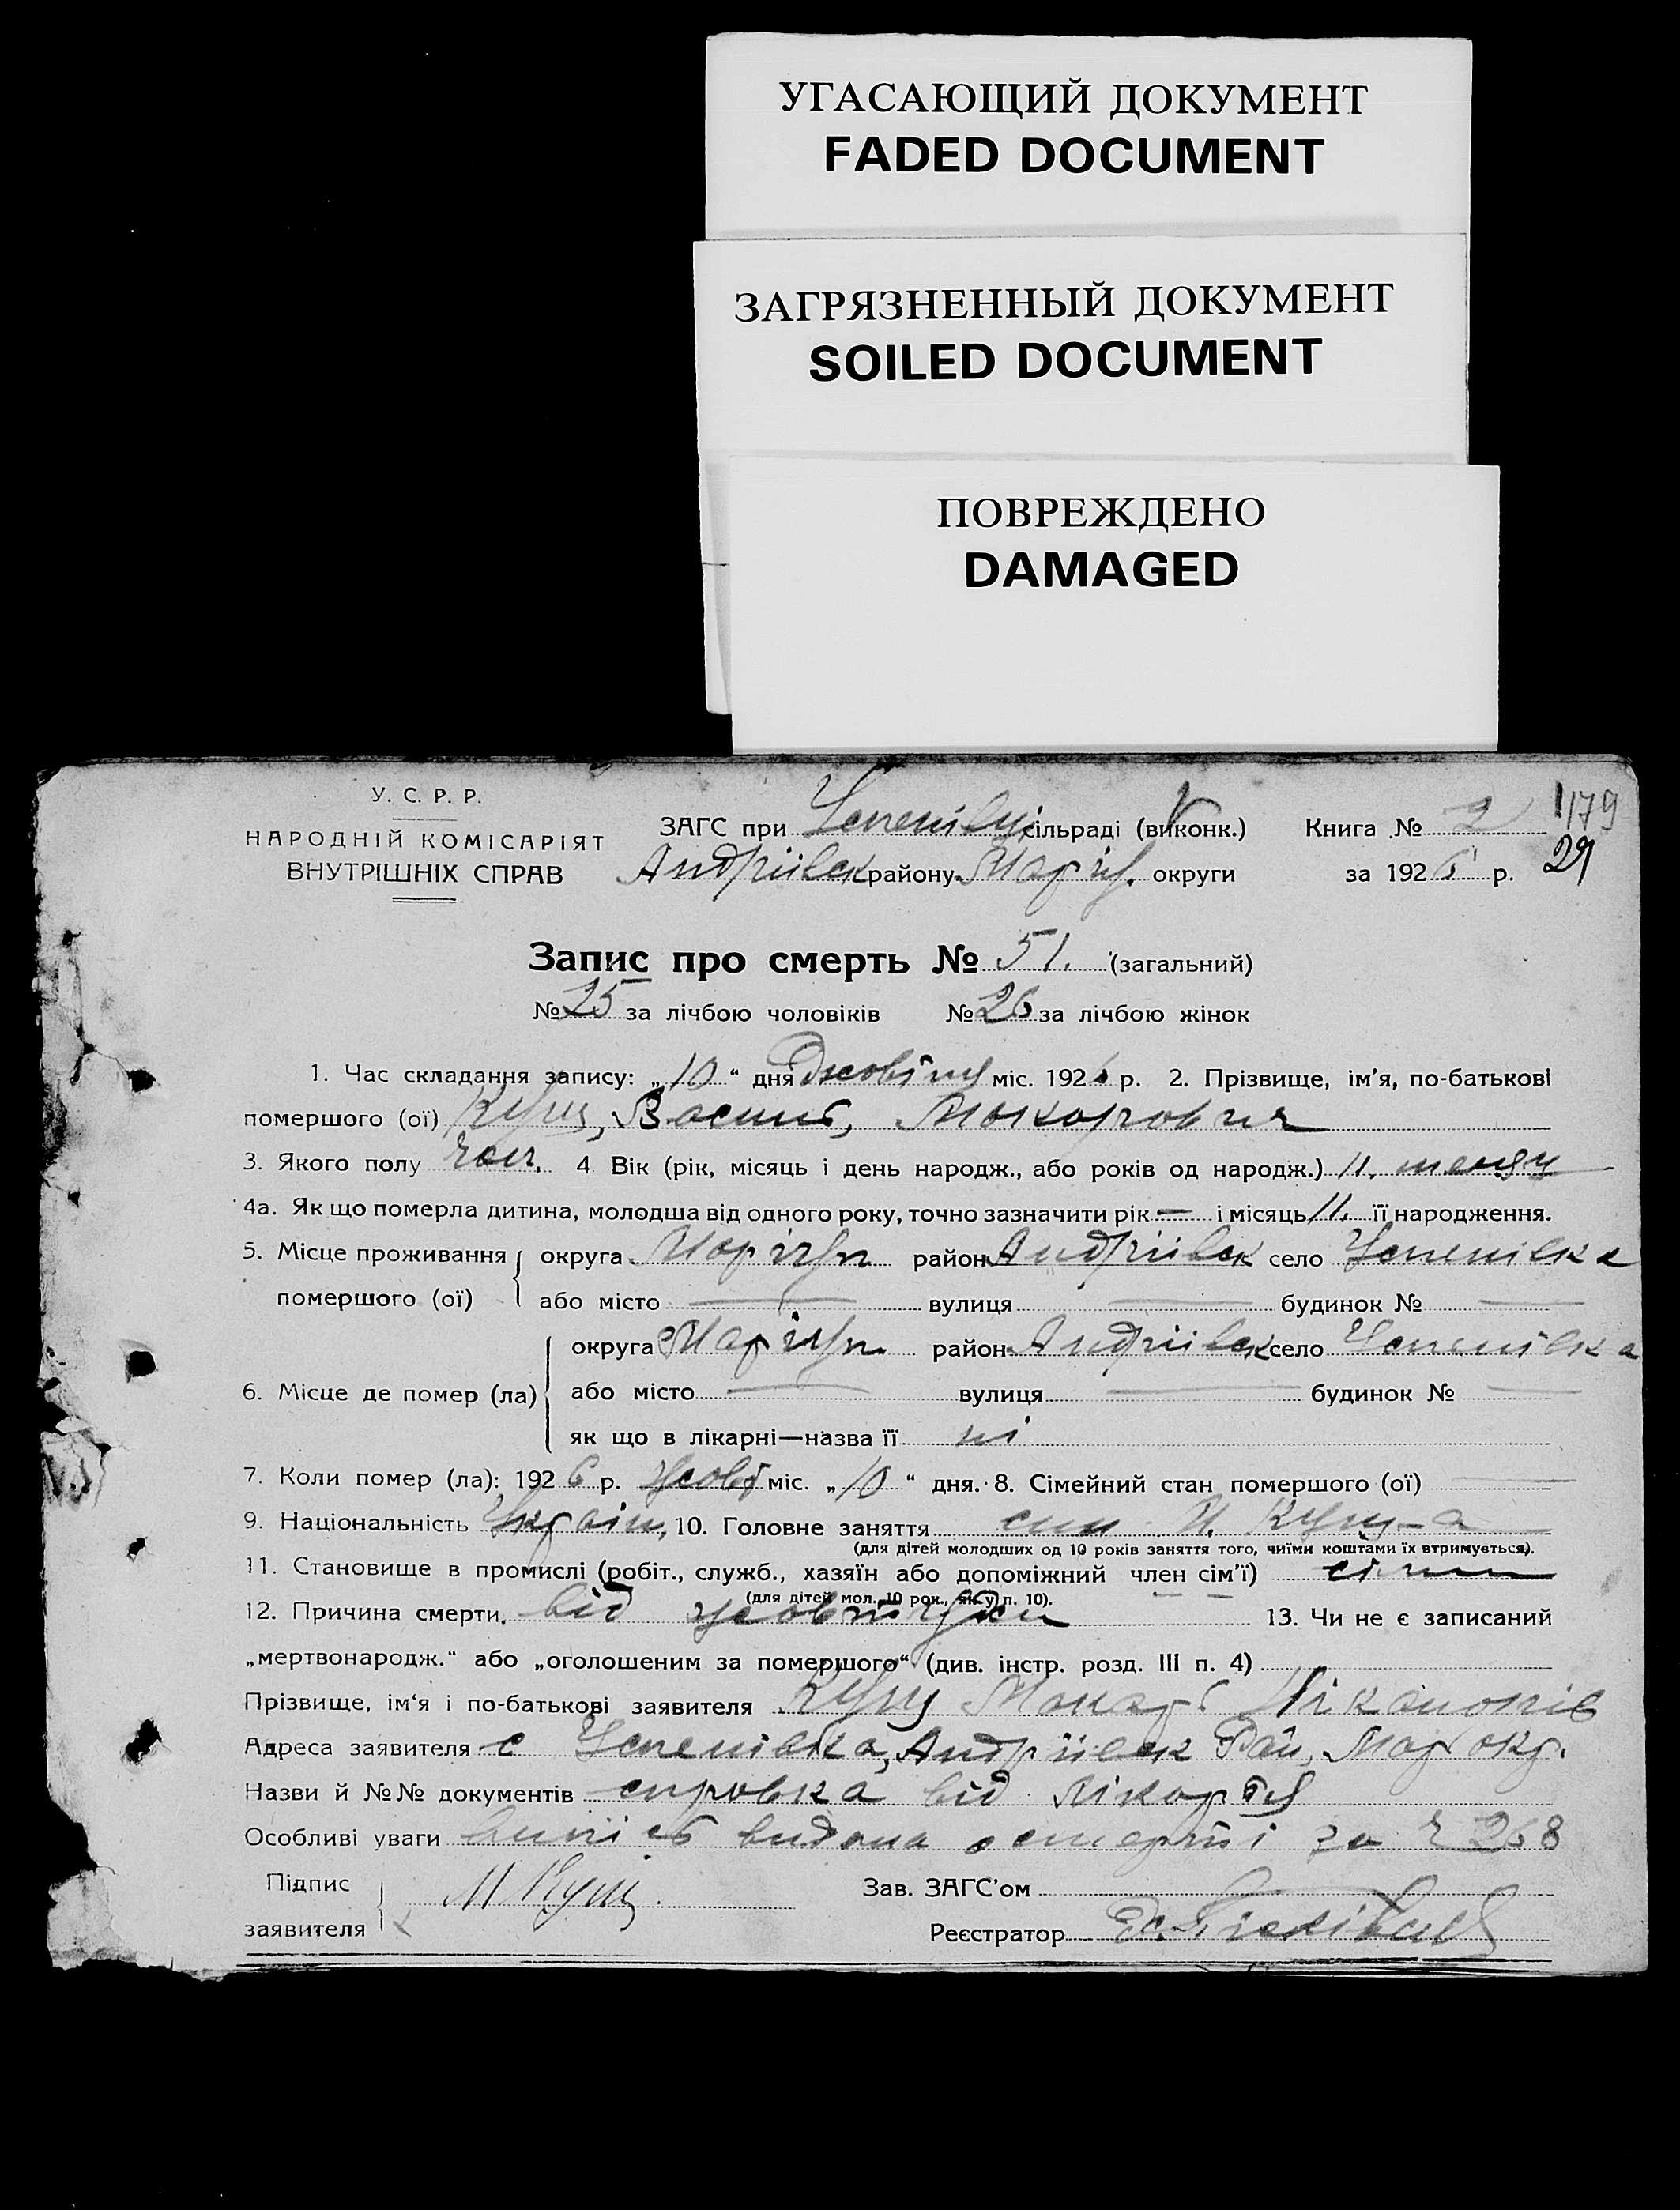 УГАСАЮЩИЙ ДОКУМЕНТ
FADED DOCUMENT
ЗАГРЯЗНЕННЫЙ ДОКУМЕНТ
SOILED DOCUMENT
ПОВРЕЖДЕНО
DAMAGED
У. С. Р. Р.
НАРОДНІЙ КОМІСАРІЯТ
ВНУТРІШНІХ СПРАВ
ЗАГС при Успенівц. сільраді (виконк.)
Андріївськ району Маріуп. округи
Книга № 2
за 1926 р.
179
29
Запис про смерть № 51. (загальний)
№ 25 за лічбою чоловіків № 26 за лічбою жінок
1. Час складання запису: „10“ дня Жовтня міс. 1926 р. 2. Прізвище, ім'я, по-батькові
помершого (ої) Куцц, Василь, Макарович
3. Якого полу чол. 4 Вік (рік, місяць і день народж., або років од народж.) 11.
4а. Як що померла дитина, молодша від одного року, точно зазначити рік — і місяць 11. її народження.
5. Місце проживання помершого (ої) округа Маріуп район Андріївськ село Успенівка
або місто — вулиця — будинок № —
6. Місце де помер (ла) округа Маріуп. район Андріївськ село Успенівка
або місто — вулиця — будинок № —
як що в лікарні—назва її ні
7. Коли помер (ла): 1926 р. жовт міс. „10“ дня. 8. Сімейний стан помершого (ої) —
9. Національність Україн, 10. Головне заняття син
(для дітей молодших од 10 років заняття того, чиїми коштами їх втримується).
11. Становище в промислі (робіт., служб., хазяїн або допоміжний член сім'ї)
(для дітей мол. 10 рок., як у п. 10).
12. Причина смерти. від 13. Чи не є записаний
„мертвонародж.“ або „оголошеним за помершого“ (див. інстр. розд. III п. 4)
Прізвище, ім'я і по-батькові заявителя Кущ Макар Ніканорів
Адреса заявителя с Успенівка, Андріївськ Рай, Мар окр.
Назви й №№ документів справка від лікаря
Особливі уваги випись видана за 268
Підпис
заявителя М Кущ
Зав. ЗАГС'ом
Реєстратор